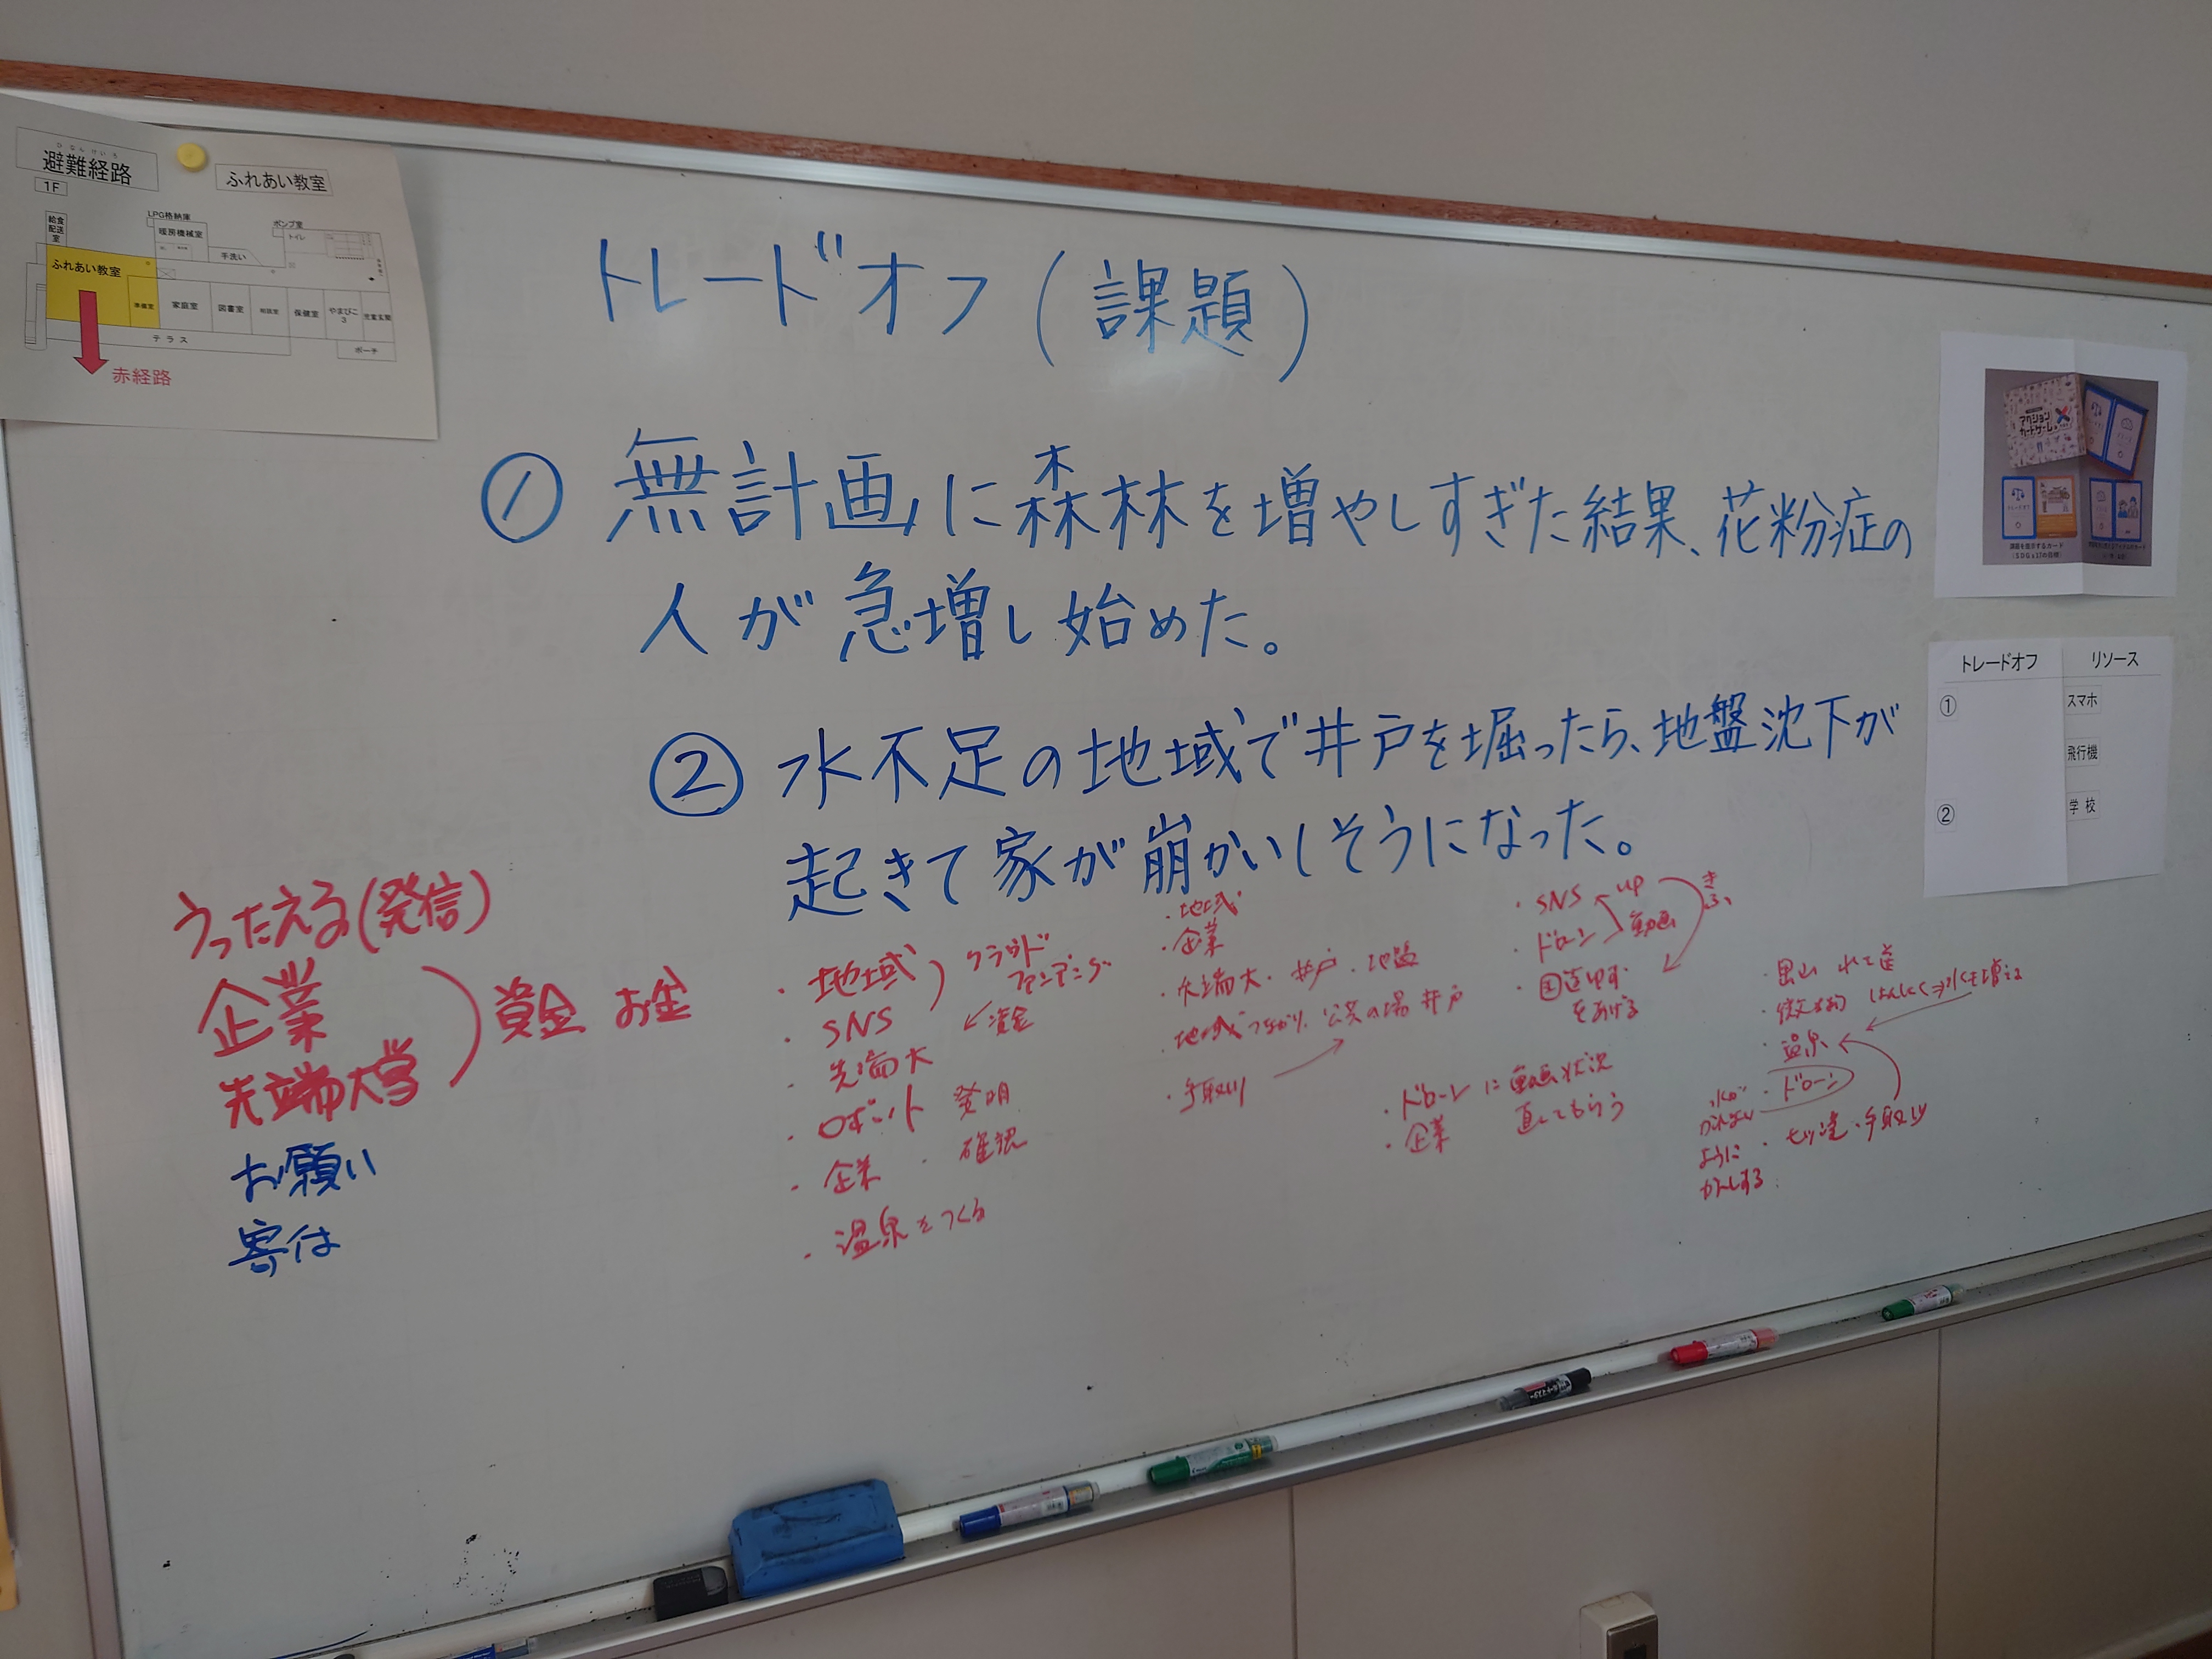 避難経路
ひなんけいろ
1F
ふれあい教室
給食配送室
LPG格納庫
暖房機械室
手洗い
ポンプ室
トイレ
ふれあい教室
準備室
家庭室
図書室
相談室
保健室
やまびこ3
児童玄関
テラス
ポーチ
赤経路
トレードオフ(課題)
① 無計画に森林を増やしすぎた結果、花粉症の
人が急増し始めた。
② 水不足の地域で井戸を堀ったら、地盤沈下が
起きて家が崩かいしそうになった。
アクション
カードゲーム
トレードオフ
課題を提示するカード
(SDGs17の目標)
トレードオフ リソース
① スマホ
飛行機
② 学校
うったえる(発信)
企業
先端大学
資金 お金
お願い
寄付
・地域
・SNS
クラウド
ファンディング
・先端大 ←資金
・ロボット 発明
・企業 ・確認
・温泉をつくる
・地域
・企業
・先端大・井戸・地盤
・地域つながり 公共の場 井戸
・手取川
・SNS up
・ドローン 動画
きふ
をあげる
・ドローンに動画状況
・企業 直してもらう
・温泉
・ドローン
ように
・七ッ滝・手取川